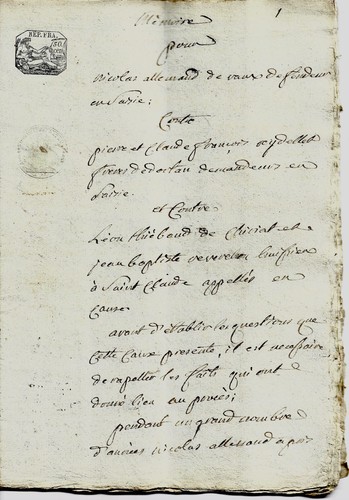 Mémoire
1
pour
REP. FRA.
nicolas allemand de vaux defendeur
en Saisie;
Contre
pierre et Claude françois reydellet
freres d'echallon demandeurs en
Saisie.
et Contre
Léon thiébaud de Chiriat et
jean baptiste reverchon huissier
à Saint Claude appellés en
cause
avant d'établir les questions que
cette Cause presente, il est necessaire
de rapeller les faits qui ont
donné lieu au procès;
pendant un grand nombre
d'années nicolas allemand a pris